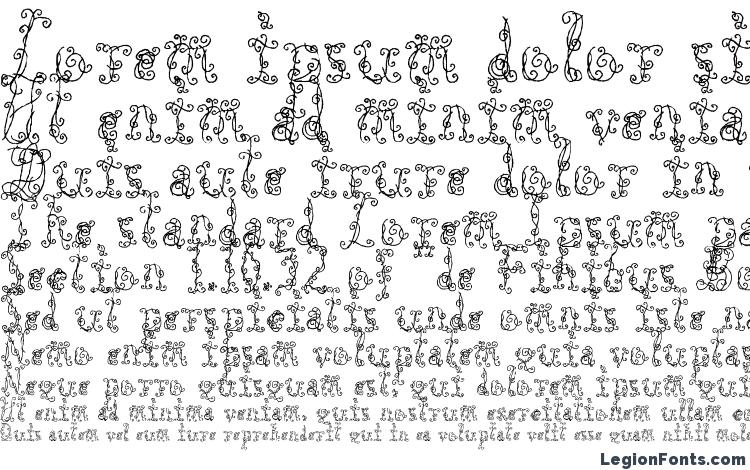 Lorem ipsum dolor si
Ut enim ad minim venia
Duis aute irure dolor in
The standard Lorem Ipsum
Section 1.10.32 of "de Finibus Bo
Sed ut perspiciatis unde omnis iste n
Nemo enim ipsam voluptatem quia voluptas
Neque porro quisquam est, qui dolorem ipsum quia
Ut enim ad minima veniam, quis nostrum exercitationem ullam co
Quis autem vel eum iure reprehenderit qui in ea voluptate velit esse quam nihil molest
LegionFonts.com